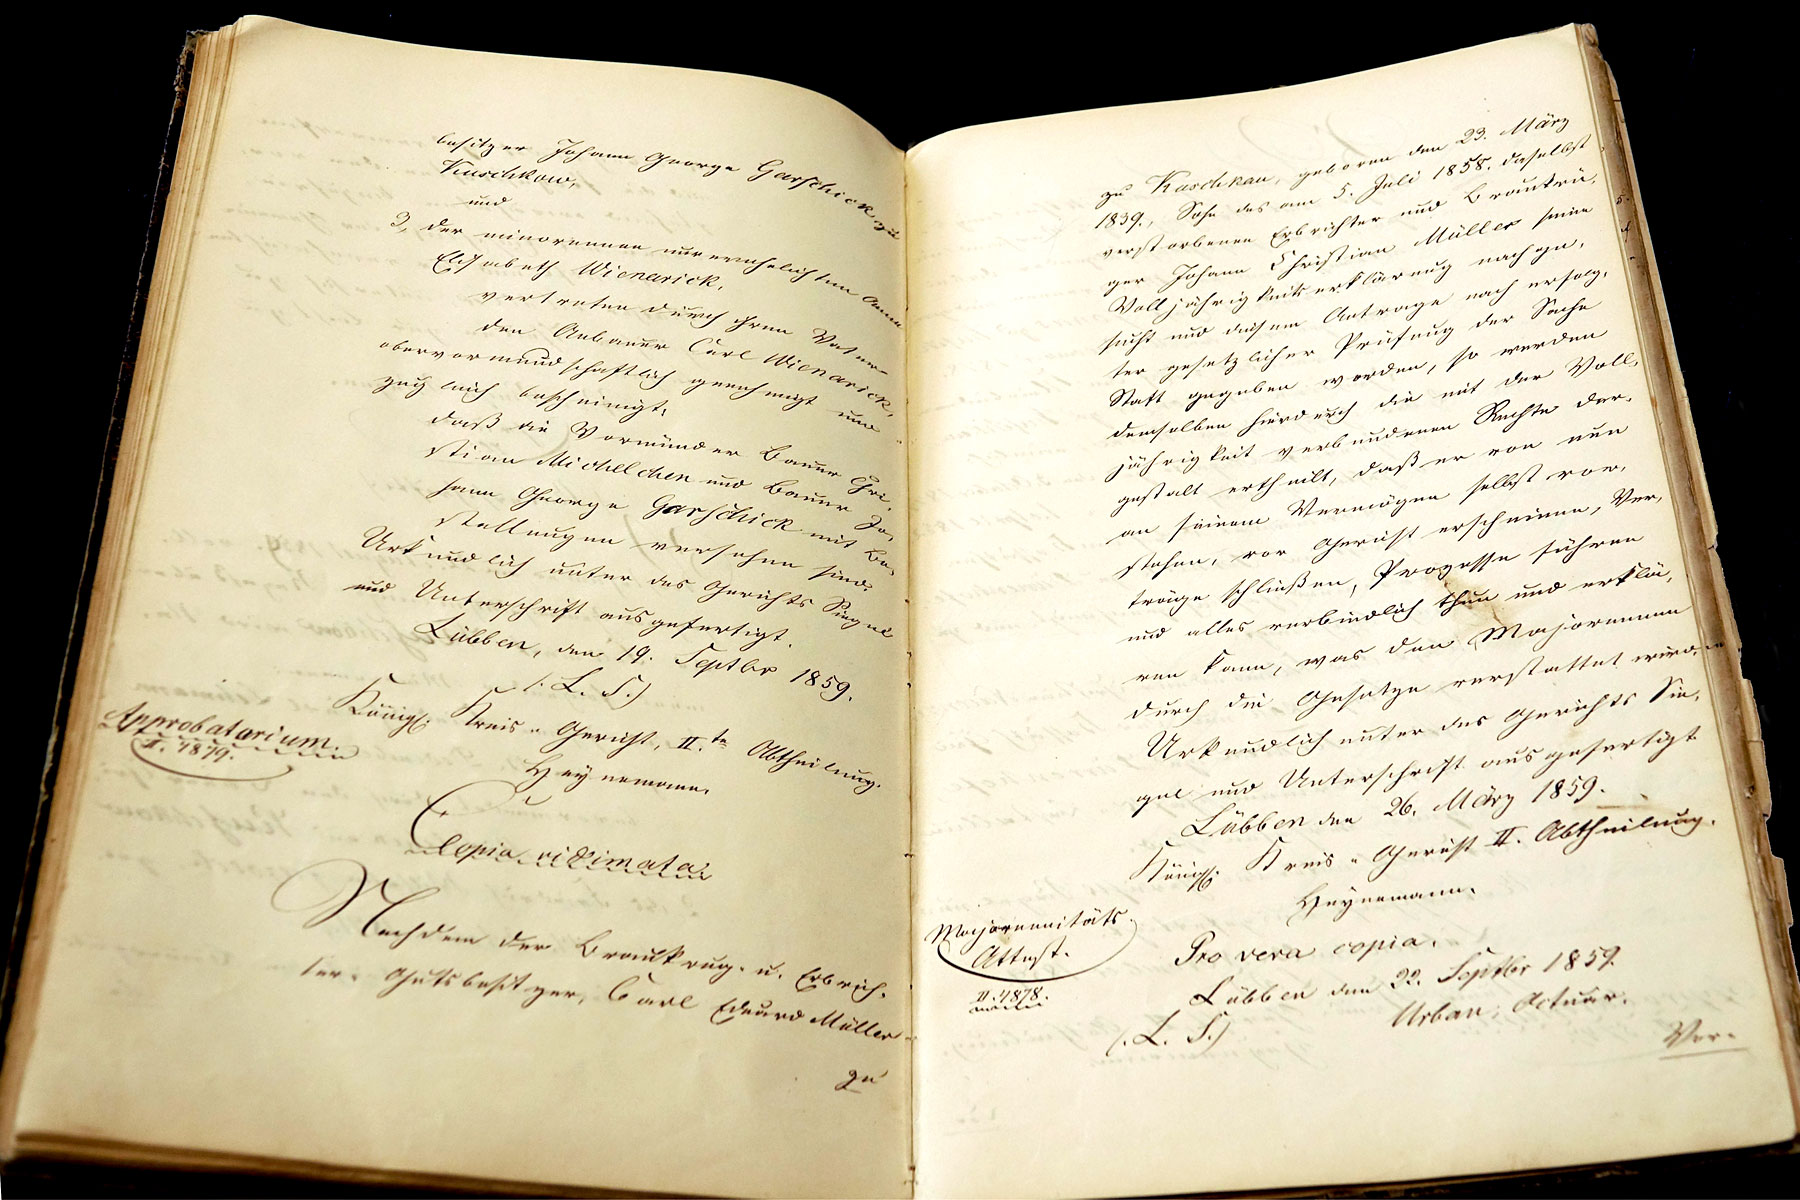 besitzer Johann George Garschick zu
Kuschkow,
und
2, der minorennen unverehelichten Anna
Elisabeth Wienarick,
vertreten durch ihren Vater
den Anbauer Carl Wienarick,
obervormundschaftlich genehmigt und
zugleich bescheinigt:
daß die Vormünder Bauer Chri-
stian Michelchen und Bauer Jo-
hann George Garschick mit Be-
stallungen versehen sind.
Urkundlich unter des Gerichts Siegel
und Unterschrift ausgefertigt.
Lübben, den 19. Septbr 1859.
(L. S.)
Königl. Kreis-Gericht, II.te Abtheilung.
Heynemann.
Approbatorium.
II. 4879.
Copia vidimata.
Nachdem der Braukrug- u. Erbrich-
ter-Gutsbesitzer, Carl Eduard Müller
zu
zu Kuschkau, geboren den 23. März
1839., Sohn des am 5. Juli 1858. daselbst
verstorbenen Erbrichter und Braukrü-
ger Johann Christian Müller seine
Volljährigkeitserklärung nachge-
sucht und diesem Antrage nach erfolg-
ter gesetzlicher Prüfung der Sache
Statt gegeben worden, so werden
demselben hierdurch die mit der Voll-
jährigkeit verbundenen Rechte der-
gestalt ertheilt, daß er von nun
an seinem Vermögen selbst vor-
stehen, vor Gericht erscheinen, Ver-
träge schließen, Prozesse führen
und alles verbindlich thun und erklä-
ren kann, was den Majorennen
durch die Gesetze verstattet wird.
Urkundlich unter des Gerichts Sie-
gel und Unterschrift ausgefertigt
Lübben den 26. März 1859.
Königl. Kreis-Gericht II. Abtheilung.
Heynemann.
Majorennitäts-
Attest.
II. 4878.
Pro vera copia.
Lübben den 22. Septbr 1859.
(L. S.) Urban, Actuar.
Ver-